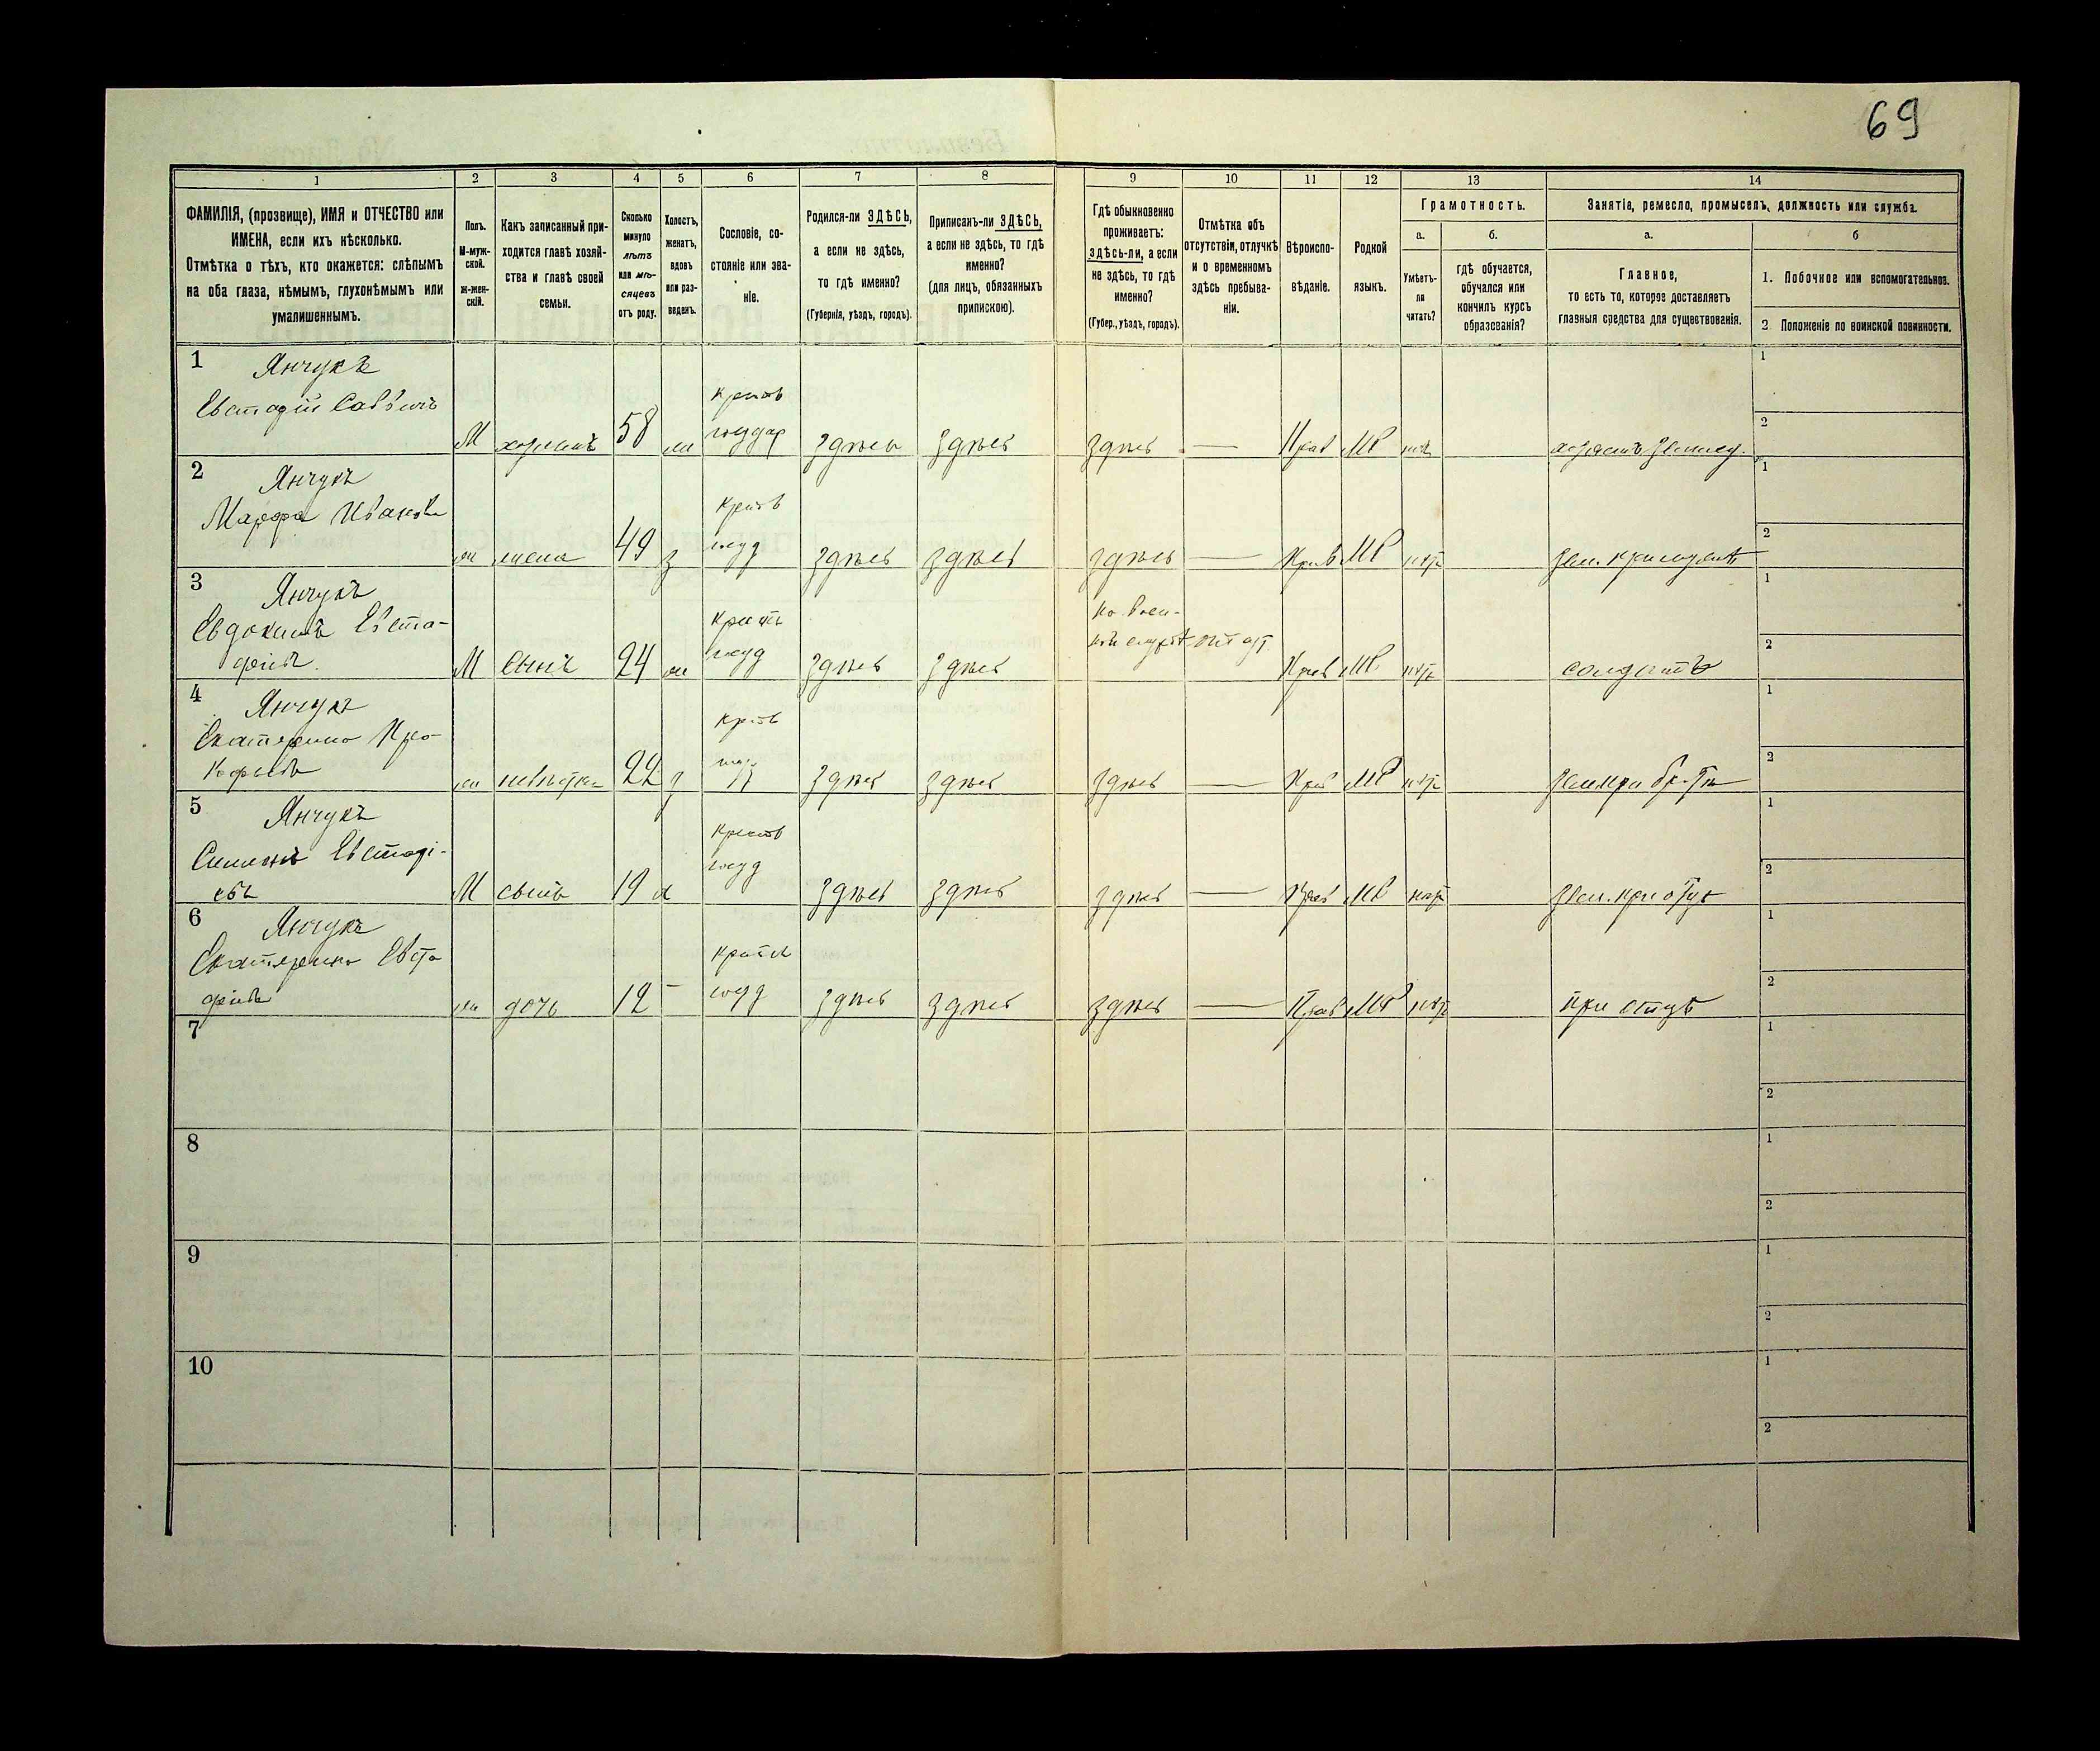 69
1 2 3 4 5 6 7 8 9 10 11 12 13 14
ФАМИЛІЯ, (прозвище), ИМЯ и ОТЧЕСТВО или
ИМЕНА, если ихъ нѣсколько.
Отмѣтка о тѣхъ, кто окажется: слѣпымъ
на оба глаза, нѣмымъ, глухонѣмымъ или
умалишеннымъ.
Полъ.
М-муж-
ской.
ж-жен-
скій.
Какъ записанный при-
ходится главѣ хозяй-
ства и главѣ своей
семьи.
Сколько
минуло
лѣтъ
или мѣ-
сяцевъ
отъ роду.
Холостъ,
женатъ,
вдовъ
или раз-
веденъ.
Сословіе, со-
стояніе или зва-
ніе.
Родился-ли ЗДѢСЬ,
а если не здѣсь,
то гдѣ именно?
(Губернія, уѣздъ, городъ).
Приписанъ-ли ЗДѢСЬ,
а если не здѣсь, то гдѣ
именно?
(для лицъ, обязанныхъ
припискою).
Гдѣ обыкновенно
проживаетъ:
здѣсь-ли, а если
не здѣсь, то гдѣ
именно?
(Губер., уѣздъ, городъ).
Отмѣтка объ
отсутствіи, отлучкѣ
и о временномъ
здѣсь пребыва-
ніи.
Вѣроиспо-
вѣданіе.
Родной
языкъ.
Грамотность.
а.
Умѣетъ-
ли
читать?
б.
гдѣ обучается,
обучался или
кончилъ курсъ
образованія?
Занятіе, ремесло, промыселъ, должность или служба.
а.
Главное,
то есть то, которое доставляетъ
главныя средства для существованія.
б
1. Побочное или вспомогательное.
2 Положеніе по воинской повинности.
1 Янчукъ
Евстафій Саввичъ
М хозяинъ 58 ж
крестъ
государ
здѣсь здѣсь здѣсь — Прав МР
1
2
2 Янчукъ
Марфа Иванова
ж жена 49 з
крестъ
госуд
здѣсь здѣсь здѣсь — Прав МР
1
2
3 Янчукъ
Евдокимъ Евста-
фіевъ.
М сынъ 24 ж
крестъ
госуд
здѣсь здѣсь
на воен-
ной службѣ
Прав МР
солдатъ
1
2
4 Янчукъ
Екатерина Про-
кофьева
ж невѣстка 22 з
крестъ
здѣсь здѣсь здѣсь — Прав МР
1
2
5 Янчукъ
Симонъ Евстафі-
евъ
М сынъ 19 х
крестъ
госуд
здѣсь здѣсь здѣсь — Прав МР
1
2
6 Янчукъ
Екатерина Евста
фіева
ж дочь 12 —
госуд
здѣсь здѣсь здѣсь — Прав МР
при отцѣ
1
2
7
1
2
8
1
2
9
1
2
10
1
2